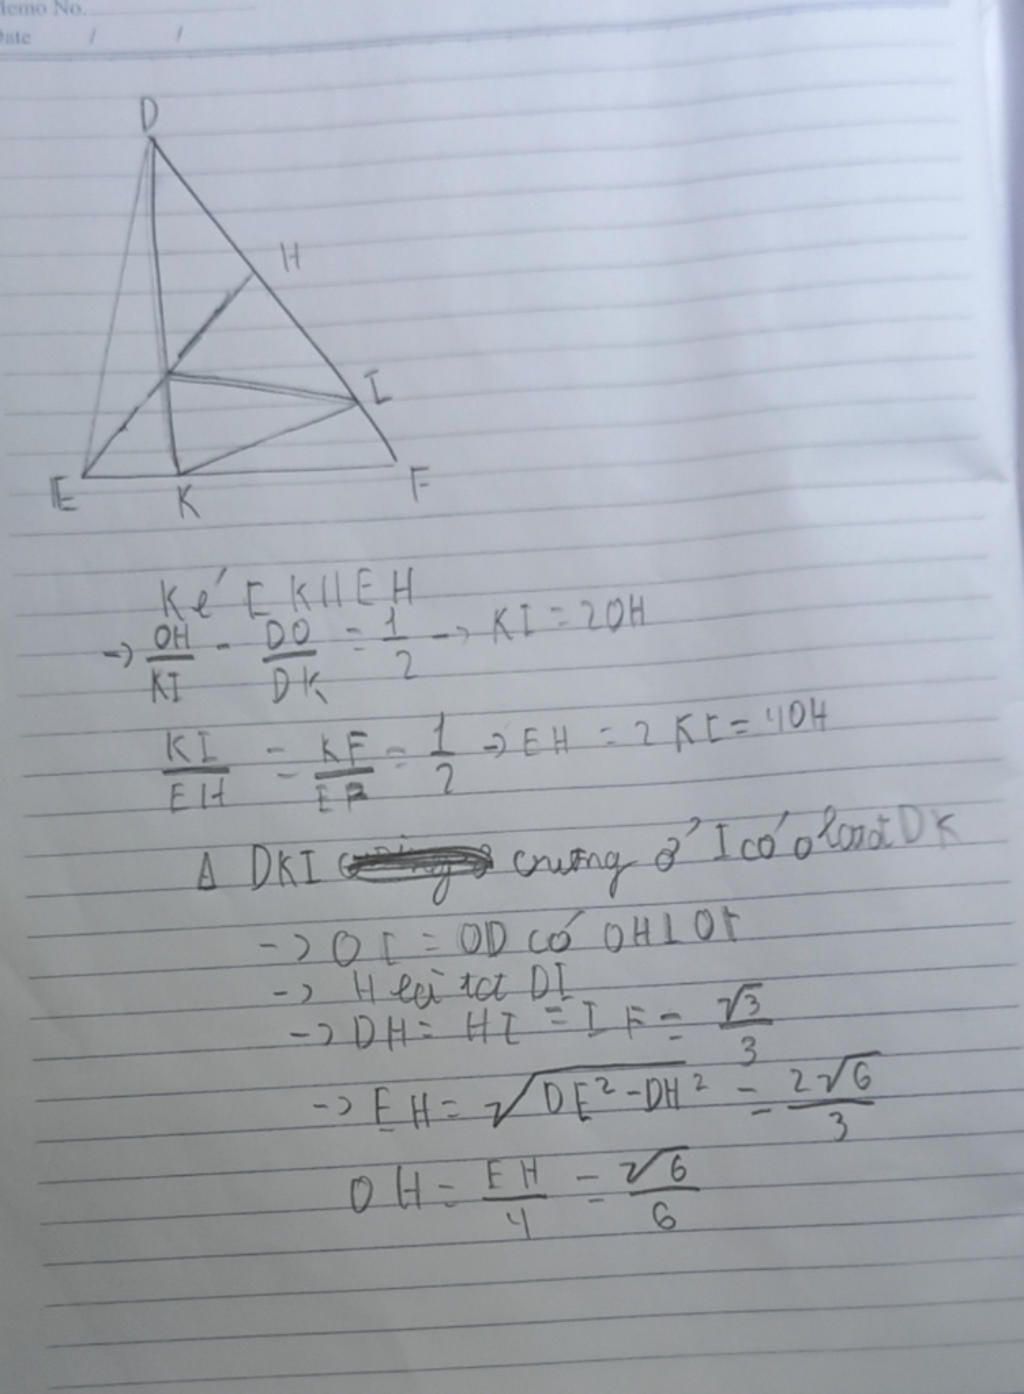 Memo No.
Date / /
D
H
I
E K F
Kẻ EK//EH
→ OH/KI = DO/DK = 1/2 → KI = 2OH
KI/EH = KF/EF = 1/2 → EH = 2KI = 4OH
Δ DKI vuông ở I có O là tđ DK
→ OI = OD có OH⊥DI
→ H là tđ DI
→ DH = HI = IF = √3/3
→ EH = √DE² - DH² = 2√6/3
OH = EH/4 = √6/6